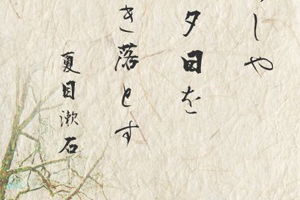 しや
夕日を
き落とす
夏目漱石